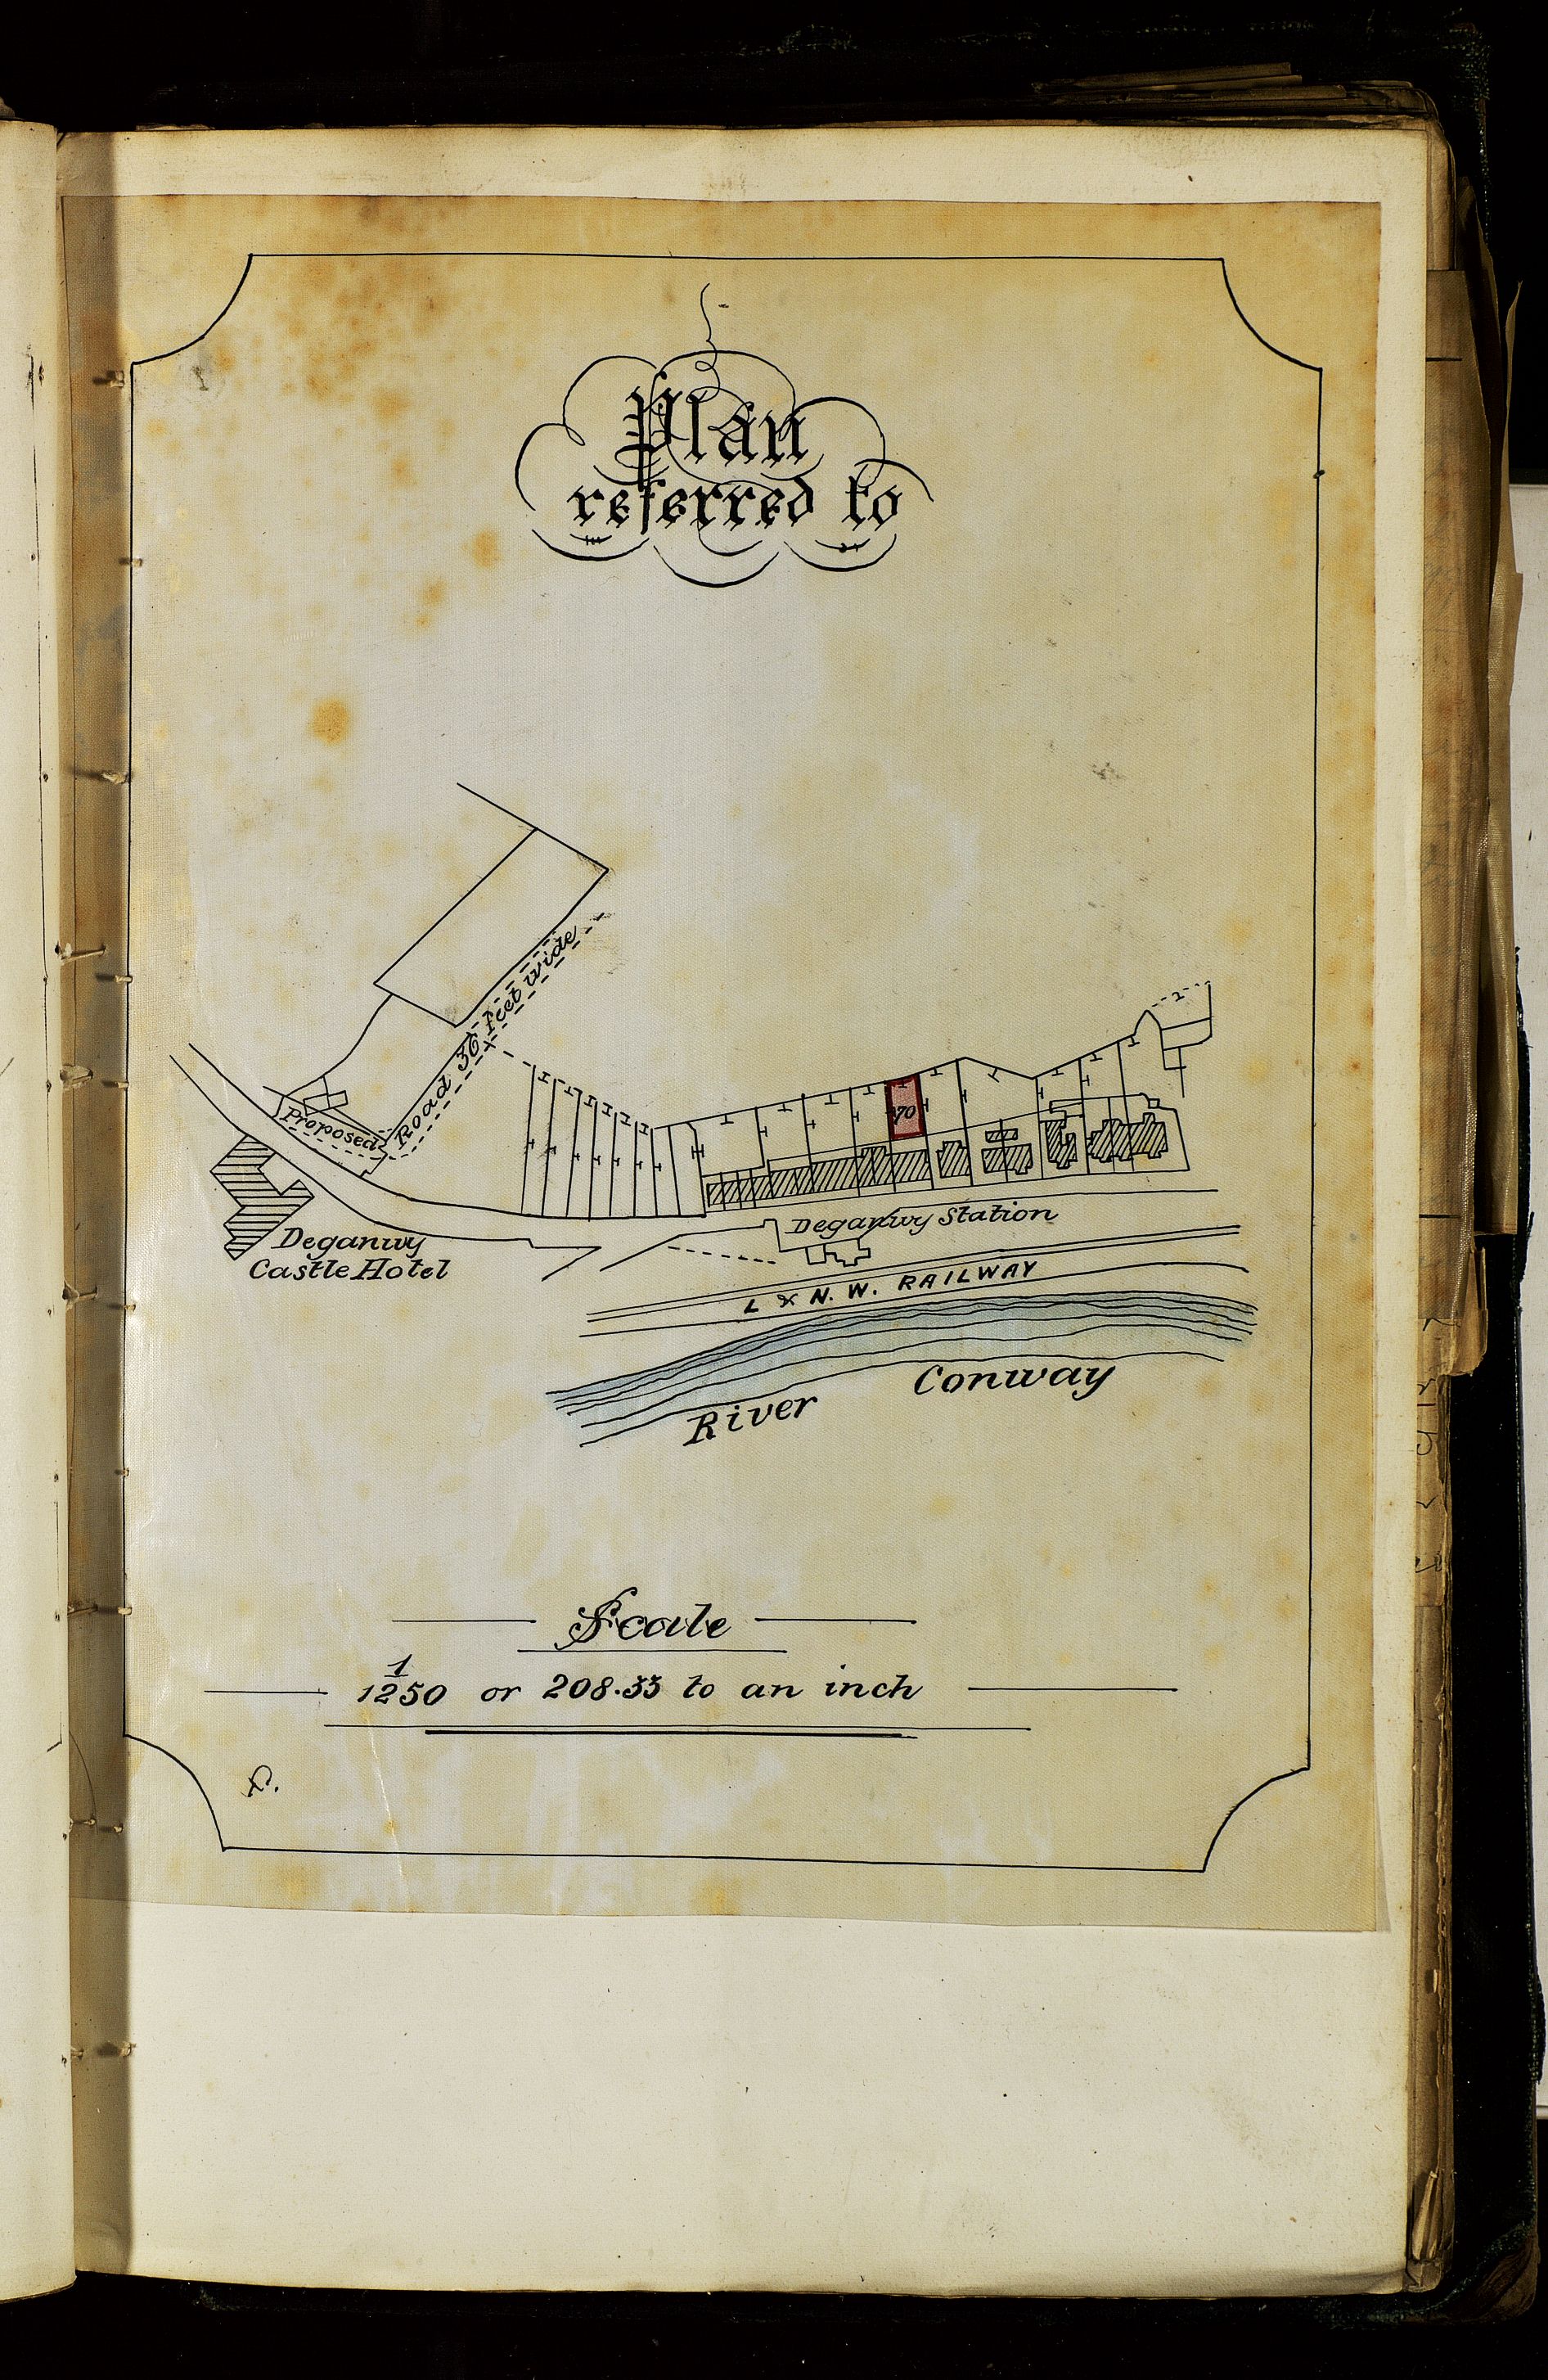 Plan
referred to
Proposed Road 36 feet wide
70
Deganwy Station
Deganwy
Castle Hotel
L & N. W. RAILWAY
River Conway
Scale
1/1250 or 208.33 to an inch